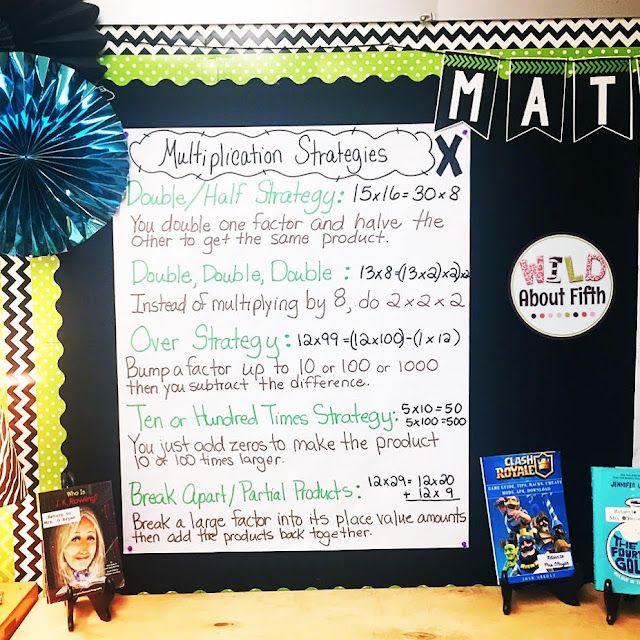 MAT
Multiplication Strategies
X
Double/Half Strategy: 15x16=30x8
You double one factor and halve the
other to get the same product.
Double, Double, Double : 13x8=(13x2)x2)x2
Instead of multiplying by 8, do 2x2x2
Over Strategy: 12x99=(12x100)-(1x12)
Bump a factor up to 10 or 100 or 1000
then you subtract the difference.
Ten or Hundred Times Strategy: 5x10=50
5x100=500
You just add zeros to make the product
10 or 100 times larger.
Break Apart/Partial Products: 12x29= 12x20
+ 12x9
Break a large factor into its place value amounts
then add the products back together.
WiLD
About Fifth
Who Is
J. K. Rowling?
Return to
CLASH
ROYALE
GAME GUIDE, TIPS, HACKS, CHEATS
MODS, APK, DOWNLOAD
Return to
JOSH ABBOTT
JENNIFER
Return
THE
FOURTH